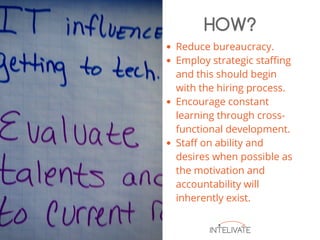 IT influence
getting to tech.
Evaluate
talents and
to current
HOW?
• Reduce bureaucracy.
• Employ strategic staffing
and this should begin
with the hiring process.
• Encourage constant
learning through cross-
functional development.
• Staff on ability and
desires when possible as
the motivation and
accountability will
inherently exist.
INTELIVATE